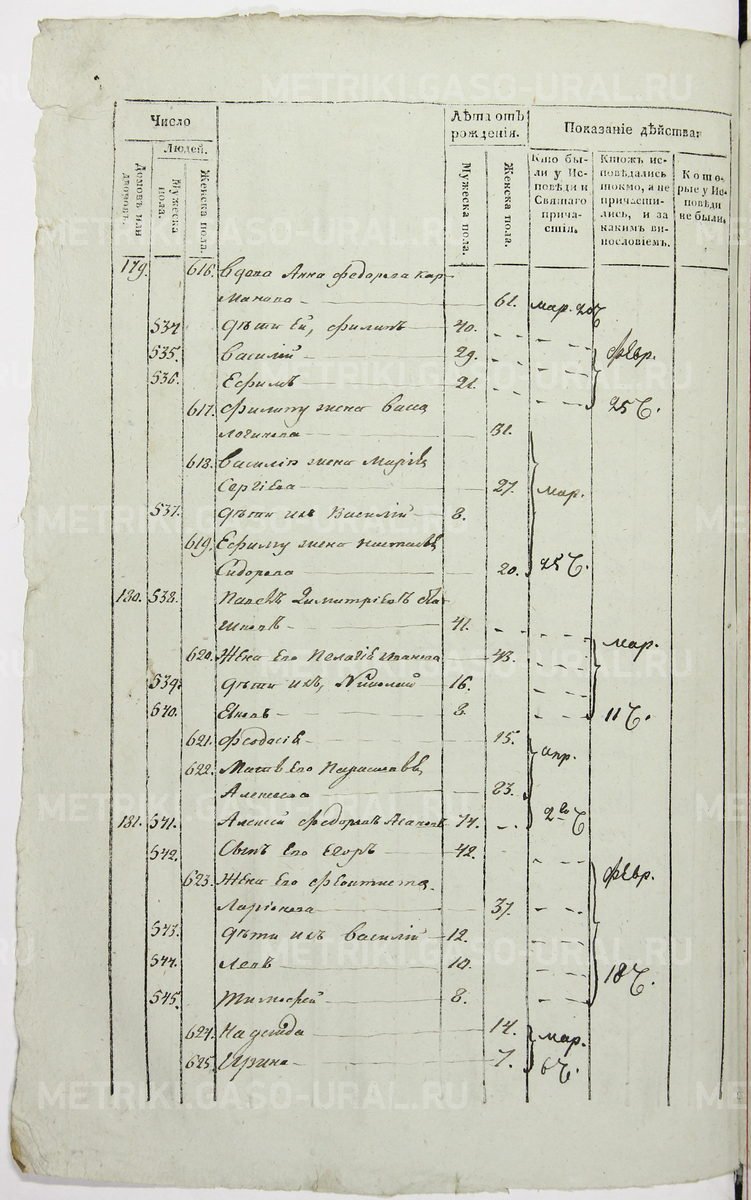 Число
Лѣта отъ рожденія.
Показаніе дѣйства:
Людей.
Домовъ или дворовъ.
Мужеска пола.
Женска пола.
Мужеска пола.
Женска пола.
Кто были у Исповѣди и Святаго причастія.
Ктожъ исповѣдались токмо, а не причастились, и за какимъ винословіемъ.
Которые у Исповѣди не были.
179. 616. Вдова Анна Федорова Кар-
манова 61. мар. 20
534 дѣти ей, Филипъ 40.
535. Василій 29. февр.
536. Ефимъ 21.
617. Филипу жена Васса 25
Логинова 31.
618. Василію жена Марія
Сергіева 27. мар.
537. дѣти ихъ Василій 8.
619. Ефиму жена Настасья
Сидорова 20. 25
180. 538. Павелъ Димитріевъ
41. мар.
620. Жена Его Пелагія Иванова 43.
539. дѣти ихъ, Николай 16.
640. 8. 11
621. Феодосія 15. апр.
622. Мать Его Параскева
Алексеева 83.
181. 541. Алексій Федоровъ 74. 2го
542. Сынъ Его Егоръ 42.
623. Жена Его Феоктиста февр.
Ларіонова 37.
543. дѣти ихъ Василій 12.
544. Левъ 10. 18
545. Тимофей 8.
624. Надежда 14. мар.
625. Ирина 7. 6
METRIKI.GASO-URAL.RU